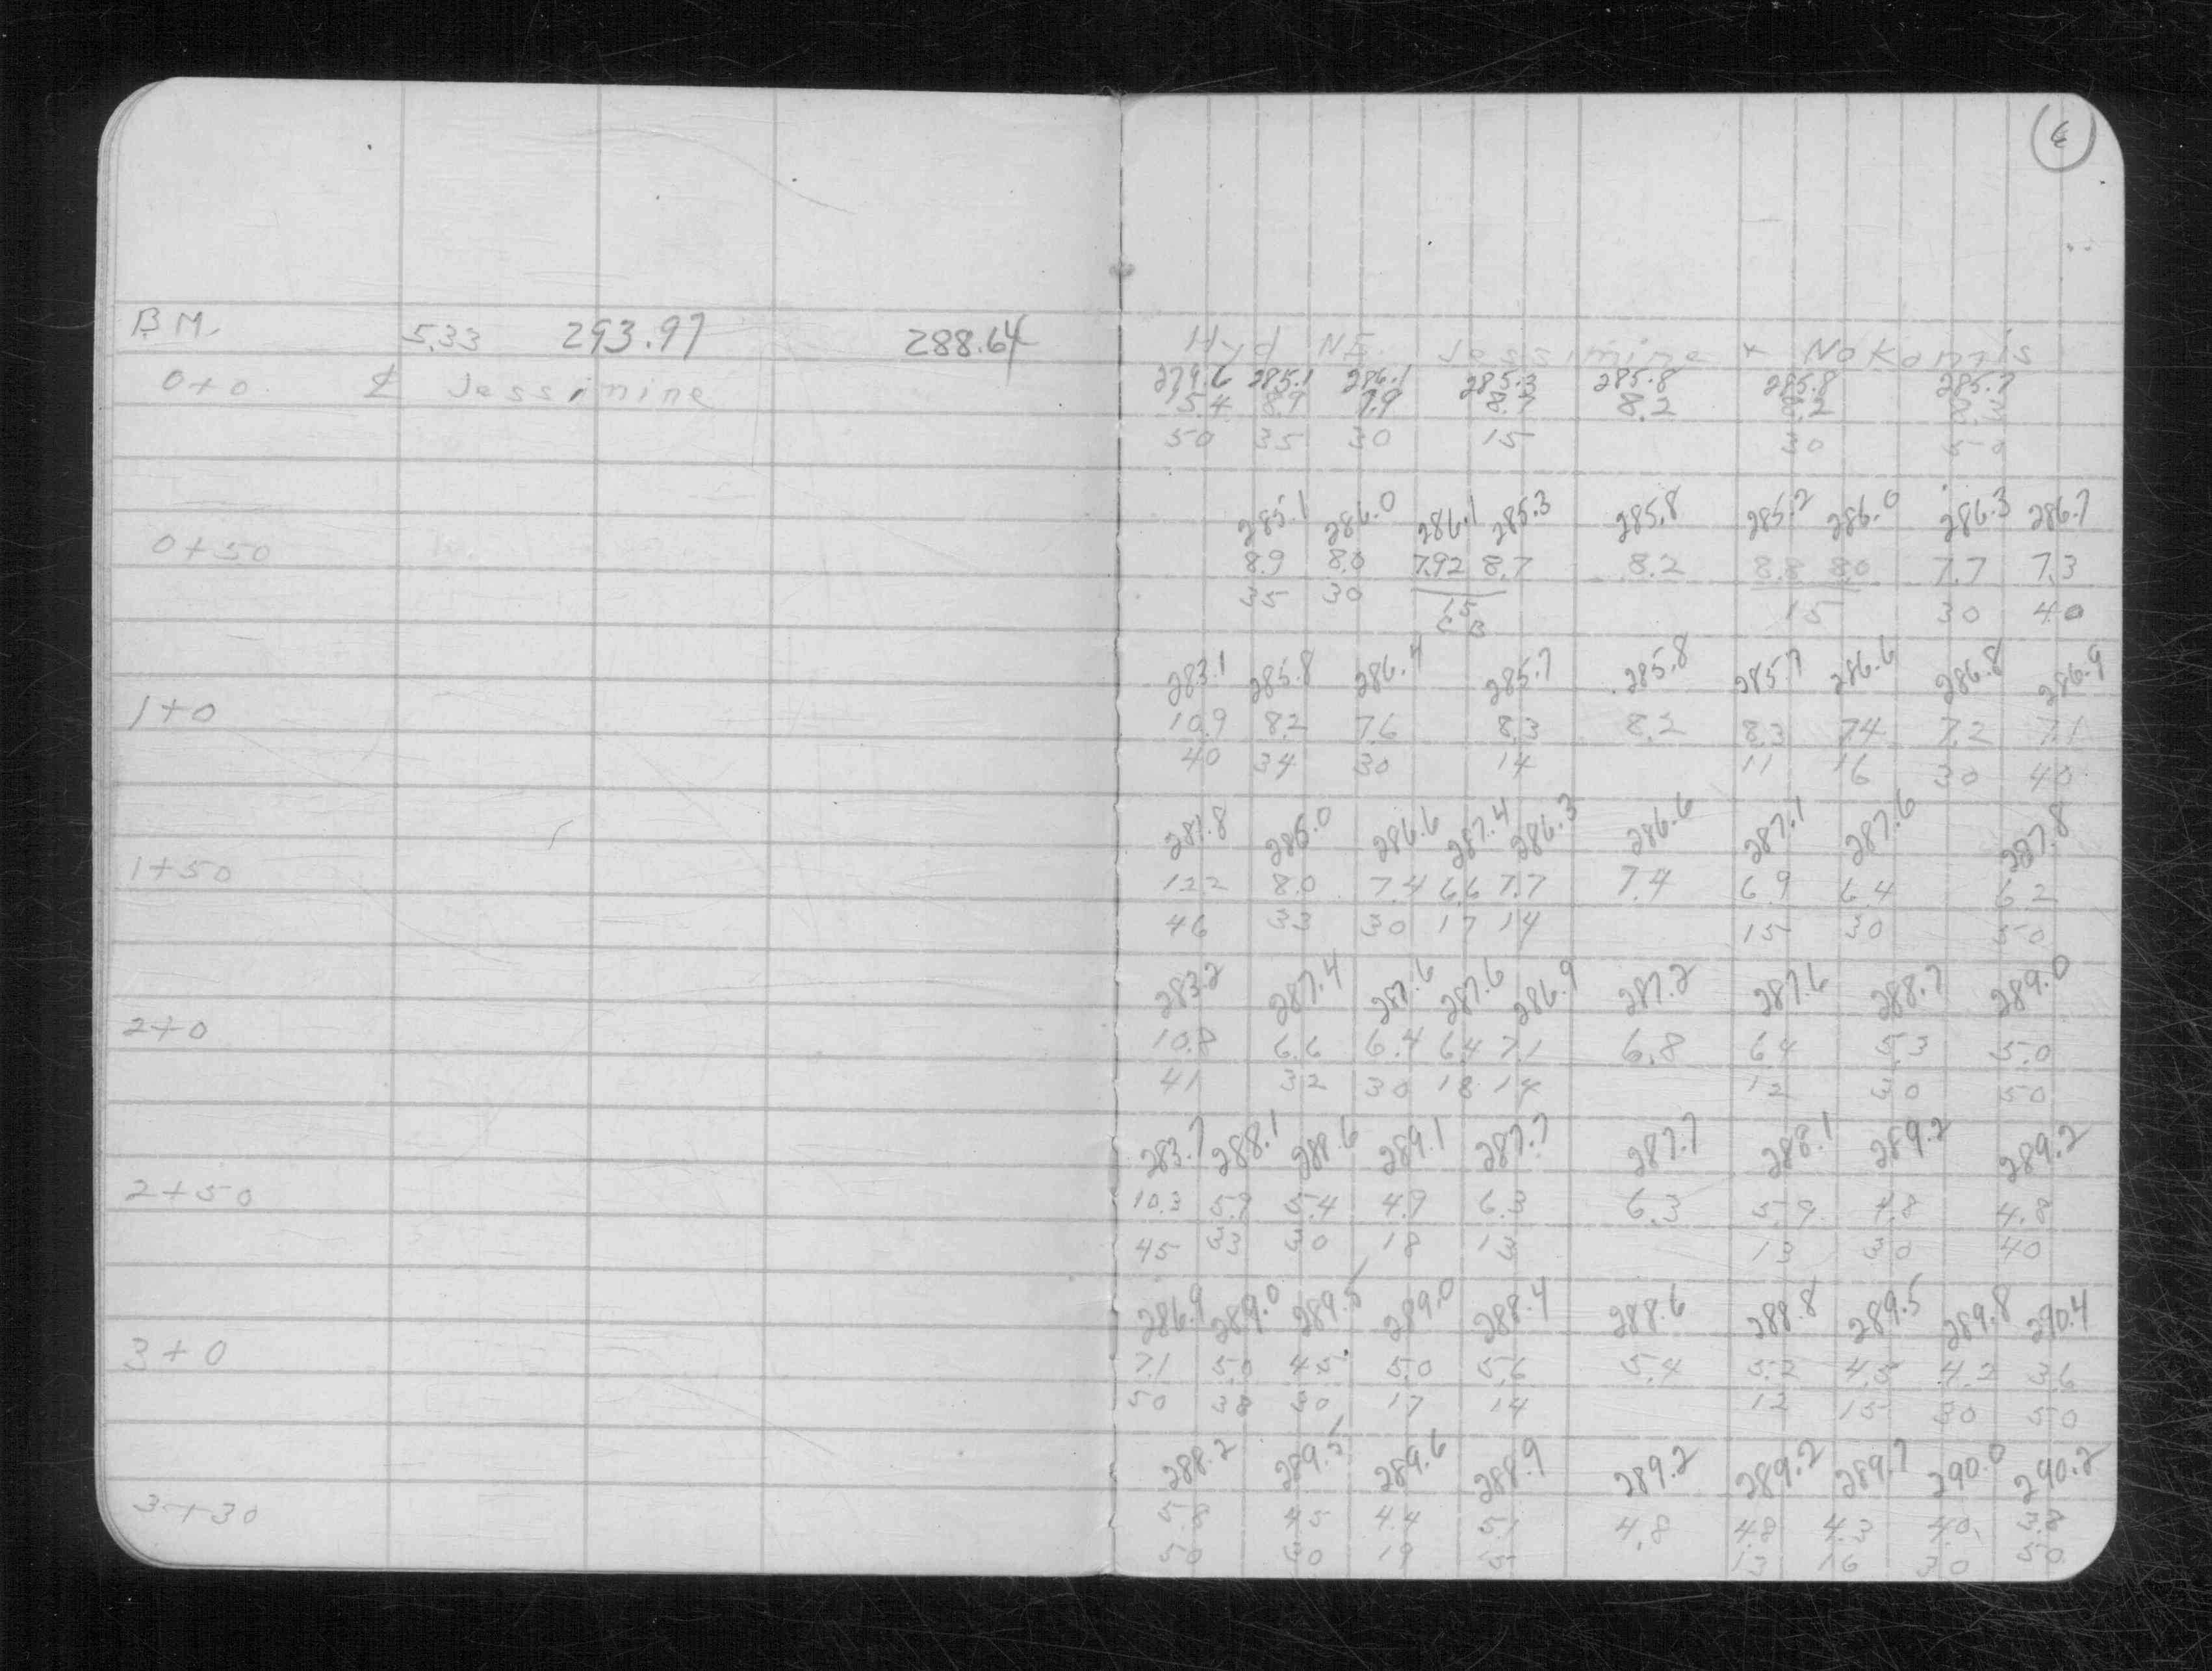 6
B.M. 5.33 293.97 288.64 Hyd NE. Jessimine + Nokomis
0+0 ℄ Jessimine 279.6 285.1 286.1 285.3 285.8 285.8 285.7
8.9 7.9 8.7 8.2 8.2 8.3
50 35 30 15 30 50
285.1 286.0 286.1 285.3 285.8 285.2 286.0 286.3 286.7
0+50 8.9 8.0 7.92 8.7 8.2 8.8 8.0 7.7 7.3
35 30 15 15 30 40
CB
283.1 285.8 286.4 285.7 285.8 285.7 286.6 286.8 286.9
1+0 10.9 8.2 7.6 8.3 8.2 8.3 7.4 7.2 7.1
40 34 30 14 11 16 30 40
281.8 286.0 286.6 287.4 286.3 286.6 287.1 287.6 287.8
1+50 12.2 8.0 7.4 6.6 7.7 7.4 6.9 6.4 6.2
46 33 30 17 14 15 30 50
283.2 287.4 287.6 287.6 286.9 287.2 287.6 288.7 289.0
2+0 10.8 6.6 6.4 6.4 7.1 6.8 6.4 5.3 5.0
41 32 30 18 14 12 30 50
283.7 288.1 288.6 289.1 287.7 287.7 288.1 289.2 289.2
2+50 10.3 5.9 5.4 4.9 6.3 6.3 5.9 4.8 4.8
45 33 30 18 13 13 30 40
286.9 289.0 289.5 289.0 288.4 288.6 288.8 289.5 289.8 290.4
3+0 7.1 5.0 4.5 5.0 5.6 5.4 5.2 4.5 4.2 3.6
50 38 30 17 14 12 15 30 50
288.2 289.5 289.6 288.9 289.2 289.2 289.7 290.0 290.2
3+30 5.8 4.5 4.4 5.1 4.8 4.8 4.3 4.0 3.8
50 30 19 15 13 16 30 50